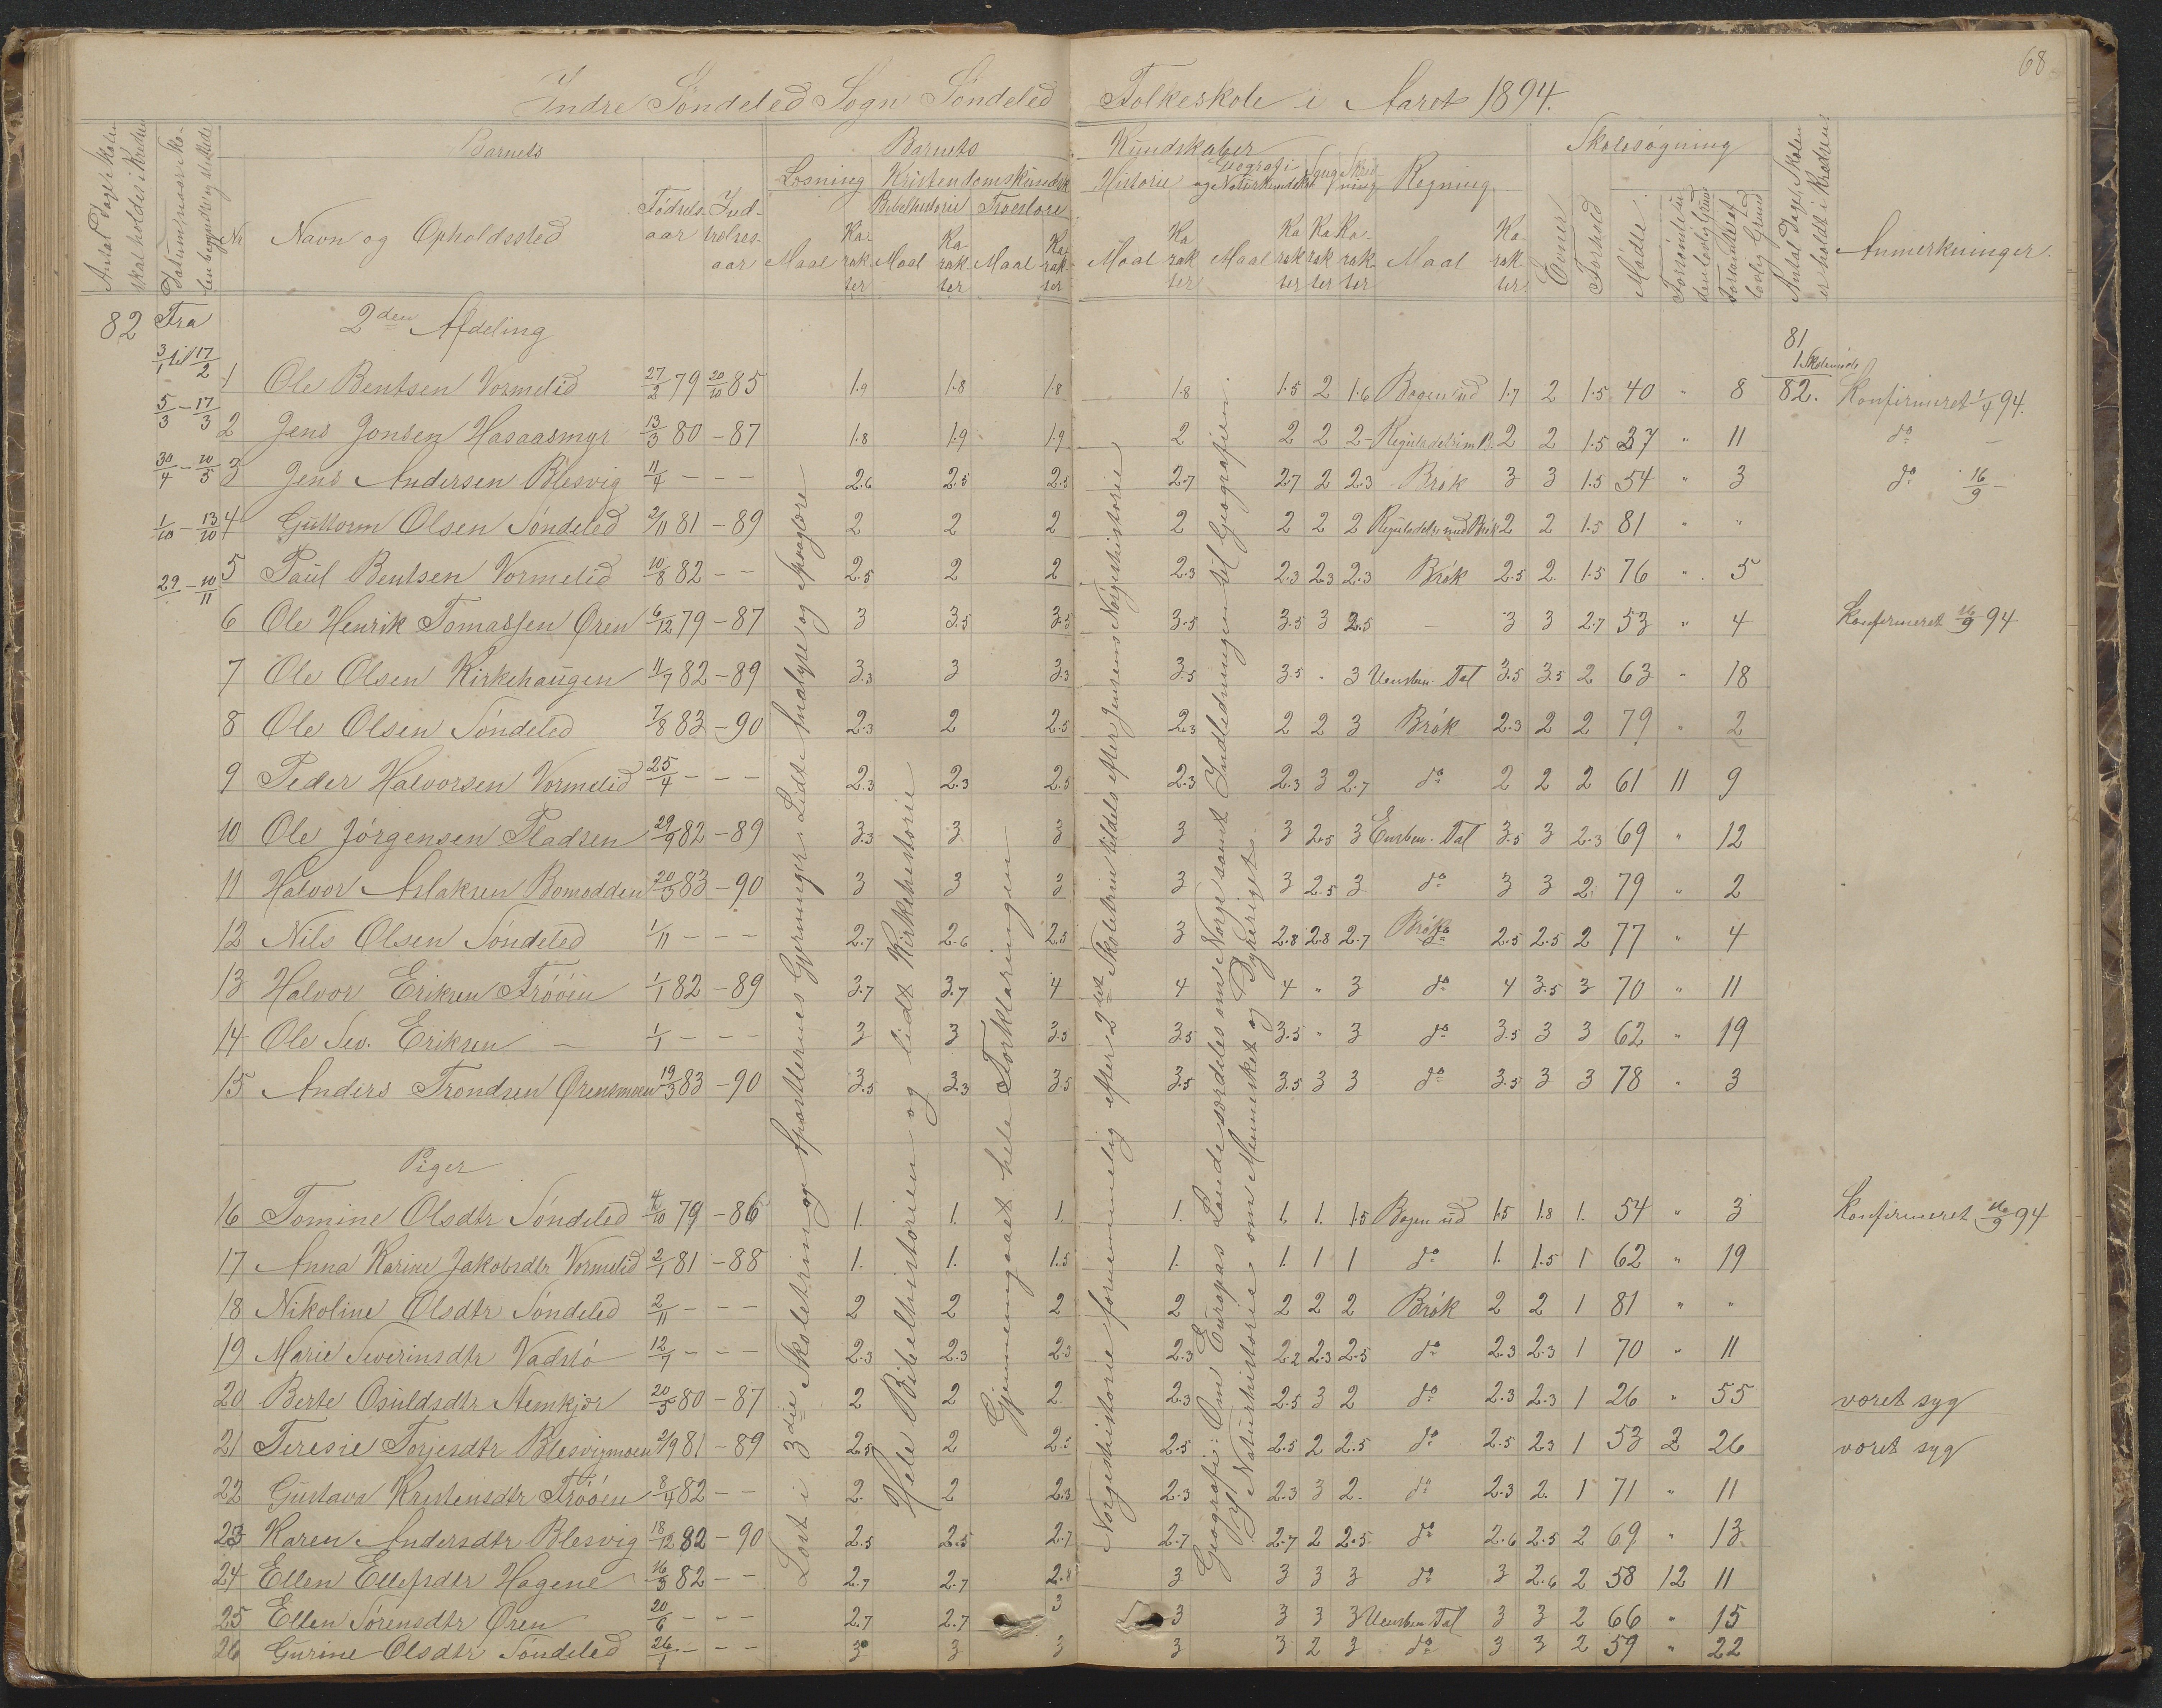 68
Indre Søndeled Sogn Søndeled Folkeskole i Aaret 1894.
Antal Dage Skolen skal holdes i Kredsen
Datum, naar Skolen begyndte og sluttede
Nr
Barnets
Navn og Opholdssted
Fødselsaar
Indtrædelsesaar
Barnets Kundskaber
Læsning Kristendomskundskab Historie Geografi og Naturkundskab Sang Skrivning Regning
Bibelhistorie Troeslære
Maal Karakter Maal Karakter Maal Karakter Maal Karakter Maal Karakter Karakter Karakter Maal Karakter
Evner
Forhold
Skolesøgning
Mødte
Forsømte uden lovlig Grund
Forsømte af lovlig Grund
Antal Dage Skolen er holdt i Kredsen
Anmerkninger.
82 Fra 2den Afdeling
3/1 til 17/2
5/3 - 17/3
30/4 - 10/5
1/10 - 13/10
29 - 10/11
81
1 Skolemøde
82.
1 Ole Bentsen Vormelid 27/2 79 20/10 85 1.9 1.8 1.8 1.8 1.5 2 1.6 Bogen ud 1.7 2 1.5 40 " 8 Konfirmeret 1/4 94.
2 Jens Jonsen Hasaasmyr 13/3 80 - 87 1.8 1.9 1.9 2 2 2 2 - Reguladetri m B. 2 2 1.5 37 " 11 do -
3 Jens Andersen Blesvig 11/4 - - - 2.6 2.5 2.5 2.7 2.7 2 2.3 Brøk 3 3 1.5 54 " 3 do 16/9 -
4 Guttorm Olsen Søndeled 2/11 81 - 89 2 2 2 2 2 2 2 Reguladetri med Brøk 2 2 1.5 81 " "
5 Paul Bentsen Vormelid 10/8 82 - - 2.5 2 2 2.3 2.3 2.3 2.3 Brøk 2.5 2 1.5 76 " 5
6 Ole Henrik Tomassen Øren 6/12 79 - 87 3 3.5 3.5 3.5 3.5 3 2.5 - 3 3 2.7 53 " 4 Konfirmeret 16/9 94
7 Ole Olsen Kirkehaugen 11/7 82 - 89 3.3 3 3.3 3.5 3.5 " 3 Uensben. Tal 3.5 3.5 2 63 " 18
8 Ole Olsen Søndeled 7/8 83 - 90 2.3 2 2.5 2.3 2 2 3 Brøk 2.3 2 2 79 " 2
9 Peder Halvorsen Vormelid 25/4 - - - 2.3 2.3 2.5 2.3 2.3 3 2.7 do 2 2 2 61 11 9
10 Ole Jørgensen Pladsen 29/9 82 - 89 3.3 3 3 3 3 2.5 3 Ensben. Tal 3.5 3 2.3 69 " 12
11 Halvor Aslaksen Bomodden 20/3 83 - 90 3 3 3 3 3 2.5 3 do 3 3 2 79 " 2
12 Nils Olsen Søndeled 1/11 - - - 2.7 2.6 2.5 3 2.8 2.8 2.7 Brøk 2.5 2.5 2 77 " 4
13 Halvor Eriksen Trøöen 1/1 82 - 89 3.7 3.7 4 4 4 " 3 do 4 3.5 3 70 " 11
14 Ole Sev. Eriksen - 1/1 - - - 3 3 3.5 3.5 3.5 " 3 do 3.5 3 3 62 " 19
15 Anders Trondsen Ørensmoen 19/3 83 - 90 3.5 3.3 3.5 3.5 3.5 3 3 do 3.5 3 3 78 " 3
Piger
16 Tomine Olsdtr Søndeled 4/10 79 - 86 1. 1. 1. 1. 1. 1. 1.5 Bogen ud 1.5 1.8 1. 54 " 3 Konfirmeret 16/9 94
17 Anna Karine Jakobsdtr Vormelid 2/1 81 - 88 1. 1. 1.5 1. 1. 1 1 do 1. 1.5 1 62 " 19
18 Nikoline Olsdtr Søndeled 2/11 - - - 2 2 2 2 2 2 2 Brøk 2 2 1 81 " "
19 Marie Severinsdtr Vadstø 12/7 - - - 2.3 2.3 2.3 2.3 2.2 2.3 2.5 do 2.3 2.3 1 70 " 11
20 Berte Osuldsdtr Stemkjær 20/5 80 - 87 2 2 2 2.3 2.5 3 2 do 2.3 2.3 1 26 " 55 været syg
21 Teresie Torjesdtr Blesvigmoen 2/9 81 - 89 2.5 2 2.5 2.5 2.5 2 2.5 do 2.5 2.3 1 53 2 26 været syg
22 Gustava Kristensdtr Trøöen 8/4 82 - - 2. 2 2.3 2.3 2.3 3 2. do 2.3 2. 1 71 " 11
23 Karen Andersdtr Blesvig 18/12 82 - 90 2.5 2.5 2.7 2.7 2.7 2 2.5 do 2.6 2.5 2 69 " 13
24 Ellen Ellefsdtr Hagene 16/3 82 - - 2.7 2.7 2.8 3 3 3 3 do 3 2.6 2 58 12 11
25 Ellen Sørensdtr Øren 20/6 - - - 2.7 2.7 3 3 3 3 3 Uensben Tal 3 3 2 66 " 15
26 Gurine Olsdtr Søndeled 26/1 - - - 3 3 3 3 3 2 3 do 3 3 2 59 " 22
Læst i 3die Skoletrin og Apostlernes Gjerninger. Lidt Analyse og Sproglære
Hele Bibelhistorien og lidt Kirkehistorie
Gjennemgaaet hele Forklaringen
Norgeshistorie fornemmelig efter 2det Skoletrin tildels efter Jensens Norgeshistorie
Geografi: Om Europas Lande særdeles om Norge samt Indledningen til Geografien.
Af Naturhistorie om Mennesket og Dyreriget.